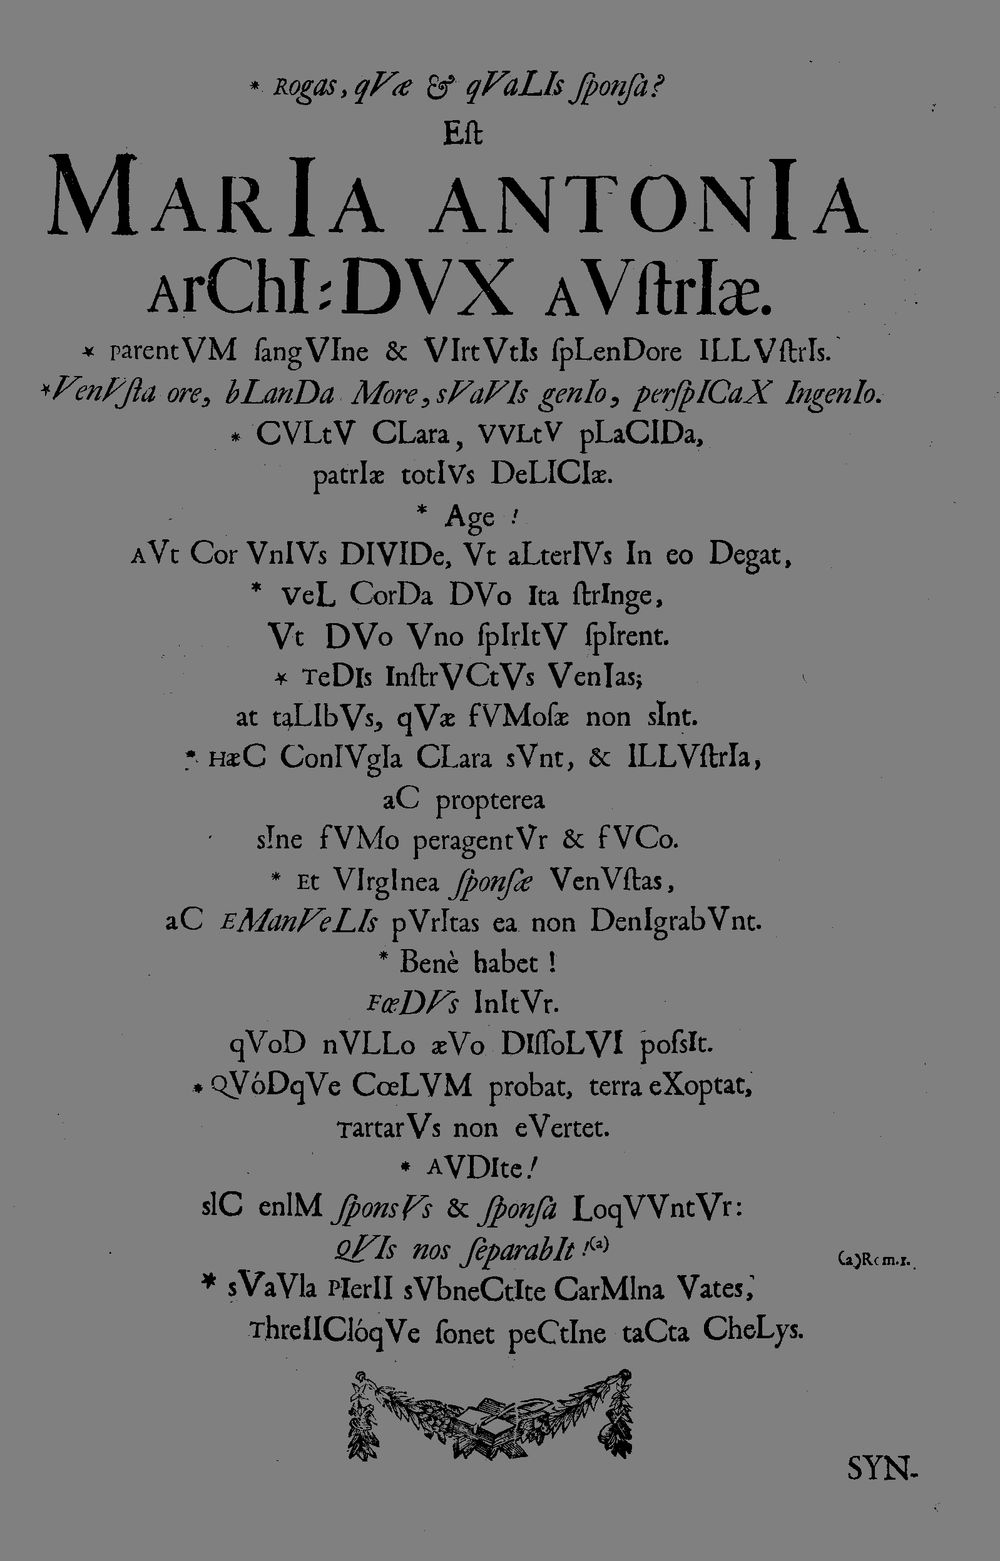 * Rogas, qVæ & qVaLIs ſponſa?
Eſt
MARIA ANTONIA
ArChI:DVX AVſtrIæ.
* parentVM ſangVIne & VIrtVtIs ſpLenDore ILLVſtrIs.
*VenVſta ore, bLanDa More, sVaVIs genIo, perſpICaX IngenIo.
* CVLtV CLara, VVLtV pLaCIDa,
patrIæ totIVs DeLICIæ.
* Age!
AVt Cor VnIVs DIVIDe, Vt aLterIVs In eo Degat,
* VeL CorDa DVo Ita ſtrInge,
Vt DVo Vno ſpIrItV ſpIrent.
* TeDIs InſtrVCtVs VenIas;
at taLIbVs, qVæ fVMoſæ non sInt.
* HæC ConIVgIa CLara sVnt, & ILLVſtrIa,
aC propterea
sIne fVMo peragentVr & fVCo.
* Et VIrgInea ſponſæ VenVſtas,
aC EManVeLIs pVrItas ea non DenIgrabVnt.
* Benè habet!
FœDVs InItVr.
qVoD nVLLo æVo DIſſoLVI poſsIt.
* QVóDqVe CœLVM probat, terra eXoptat,
TartarVs non eVertet.
* AVDIte!
sIC enIM ſponsVs & ſponſa LoqVVntVr:
QVIs nos ſeparabIt!(a)
(a)Rom.r.
* sVaVIa PIerII sVbneCtIte CarMIna Vates,
ThreIICIóqVe ſonet peCtIne taCta CheLys.
SYN-